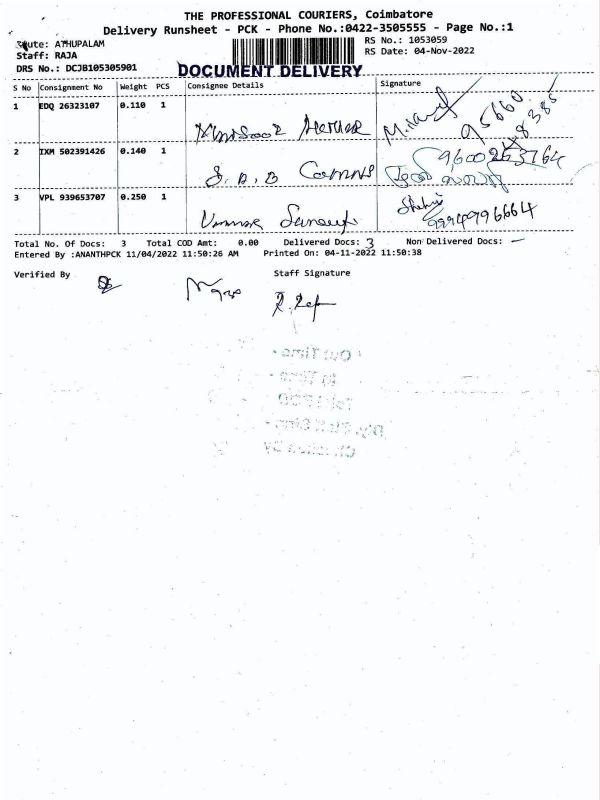 THE PROFESSIONAL COURIERS, Coimbatore
Delivery Runsheet - PCK - Phone No.:0422-3505555 - Page No.:1
Route: ATHUPALAM
RS No.: 1053059
Staff: RAJA
RS Date: 04-Nov-2022
DRS No.: DCJB105305901
DOCUMENT DELIVERY
S No Consignment No Weight PCS Consignee Details Signature
1 EDQ 26323107 0.110 1
95660
48385
2 IXM 502391426 0.140 1 S.B.B Comns
3 VPL 939653707 0.250 1
Total No. Of Docs: 3 Total COD Amt: 0.00 Delivered Docs: 3 Non Delivered Docs: —
Entered By :ANANTHPCK 11/04/2022 11:50:26 AM Printed On: 04-11-2022 11:50:38
Verified By Staff Signature
Out Time -
In Time -